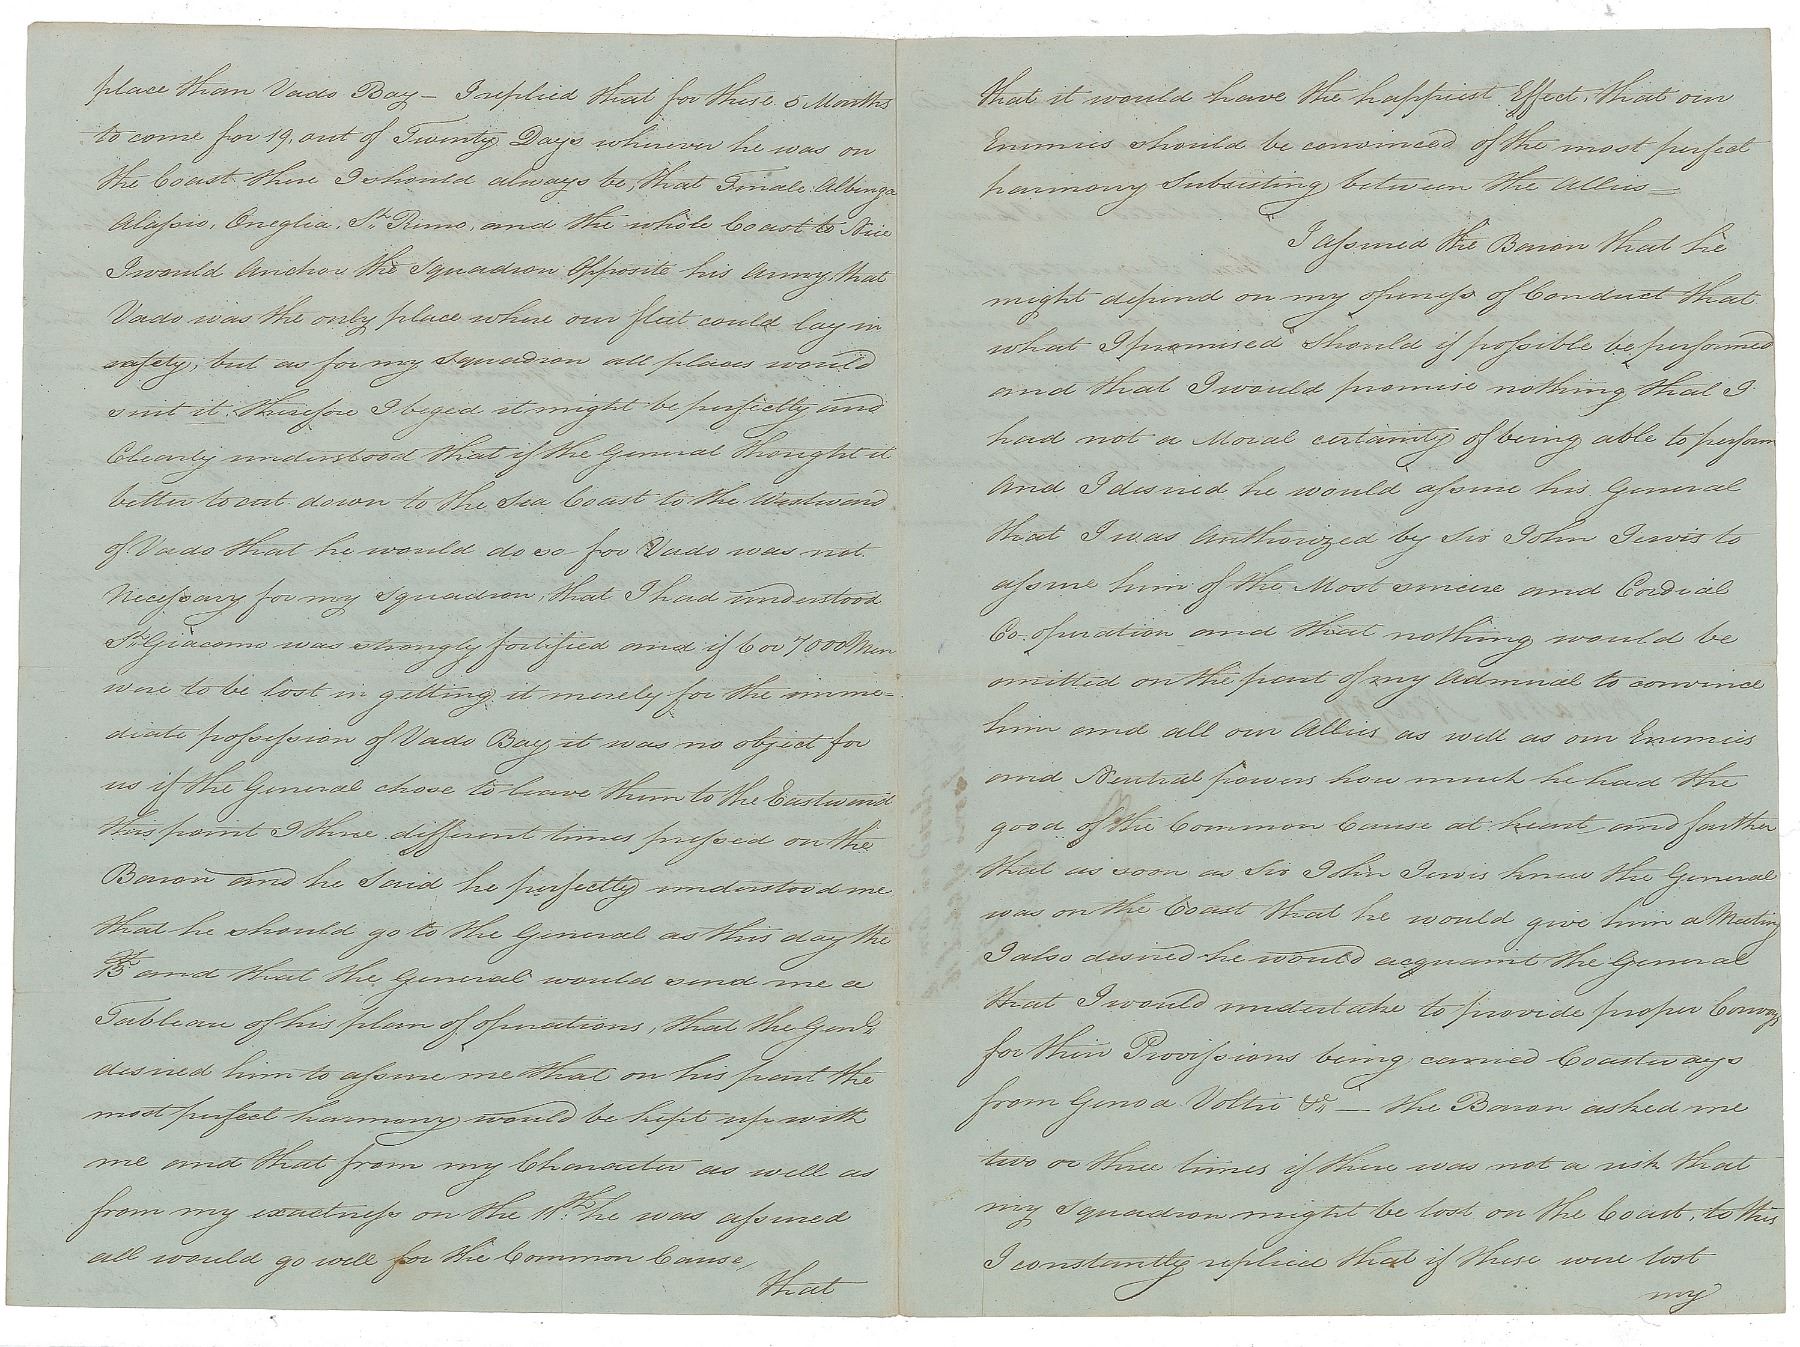 place than Vado Bay — I replied that for these 5 Months
to come for 19, out of Twenty Days wherever he was on
the Coast there I should always be, that Finale Albenga
Alassio, Oneglia, St. Remo, and the whole Coast to Nice
I would Anchor the Squadron Opposite his Army, that
Vado was the only place where our fleet could lay in
safety, but as for my Squadron all places would
suit it. therefore I beged it might be perfectly and
Clearly understood that if the General thought it
better to cut down to the Sea Coast to the Westward
of Vado that he would do so for Vado was not
Necessary for my Squadron, that I had understood
St. Giacomo was strongly fortified and if 6 or 7000 Men
were to be lost in getting it merely for the imme-
diate possession of Vado Bay it was no object for
us if the General chose to leave them to the Eastward
this point I three different times pressed on the
Baron and he Said he perfectly understood me
that he should go to the General as this day the
15th and that the General would send me a
Tableau of his plan of operations, that the Genl.
desired him to assure me that on his part the
most perfect harmony would be kept up with
me and that from my Character as well as
from my exactness on the 11th he was assured
all would go well for the Common Cause,
that
that it would have the happiest Effect, that our
Enemies should be convinced of the most perfect
harmony Subsisting between the Allies —
I assured the Baron that he
might depend on my openess of Conduct that
what I promised Should if possible be performed
and that I would promise nothing that I
had not a Moral certainty of being able to perform
And I desired he would assure his General
that I was Authorized by Sir John Jervis to
assure him of the Most sincere and Cordial
Co-operation and that nothing would be
omitted on the part of my Admiral to convince
him and all our Allies as well as our Enemies
and Neutral powers how much he had the
good of the Common Cause at heart, and farther
that as soon as Sir John Jervis knew the General
was on the Coast that he would give him a Meeting
I also desired he would acquaint the General
that I would undertake to provide proper Convoys
for their Provissions being carried Coastways
from Genoa Voltri &c — the Baron asked me
two or three times if there was not a risk that
my Squadron might be lost on the Coast, to this
I constantly replied that if these were lost
my